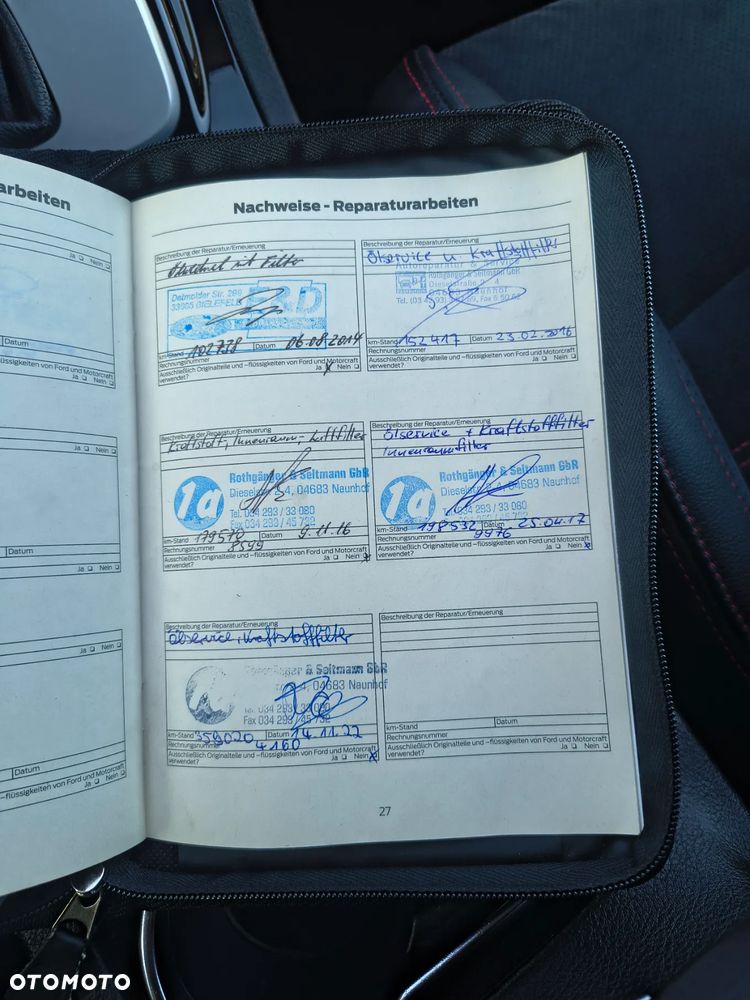 arbeiten
Ja ❑ Nein ❑
Datum
-flüssigkeiten von Ford und Motorcraft
Ja ❑ Nein ❑
Ja ❑ Nein ❑
Datum
-flüssigkeiten von Ford und Motorcraft
Ja ❑ Nein ❑
Ja ❑ Nein ❑
Datum
-flüssigkeiten von Ford und Motorcraft
Ja ❑ Nein ❑
Nachweise - Reparaturarbeiten
Beschreibung der Reparatur/Erneuerung
Ölwechsel mit Filter
Detmolder Str. 299
33605 BIELEFELD
km-Stand 102738 Datum 06.08.2014
Rechnungsnummer
Ausschließlich Originalteile und -flüssigkeiten von Ford und Motorcraft
verwendet? Ja ❑ Nein ❑
Beschreibung der Reparatur/Erneuerung
Ölservice u. Kraftstofffilter
Autoreparatur & Service
Rothgänger & Seltmann GbR
km-Stand 152417 Datum 23.02.2016
Rechnungsnummer
Ausschließlich Originalteile und -flüssigkeiten von Ford und Motorcraft
verwendet? Ja ❑ Nein ❑
Beschreibung der Reparatur/Erneuerung
Kraftstoff, Innenraum- Luftfilter
1a
Rothgänger & Seltmann GbR
04683 Naunhof
Tel. 034 293 / 33 080
Fax 034 293 / 45 792
km-Stand 179570 Datum 9.11.16
Rechnungsnummer 8599
Ausschließlich Originalteile und -flüssigkeiten von Ford und Motorcraft
verwendet? Ja ❑ Nein ❑
Beschreibung der Reparatur/Erneuerung
Ölservice + Kraftstofffilter
Innenraumfilter
1a
Rothgänger & Seltmann GbR
04683 Naunhof
Tel. 034 293 / 33 080
Fax 034 293 / 45 792
km-Stand 198532 Datum 25.04.17
Rechnungsnummer 9976
Ausschließlich Originalteile und -flüssigkeiten von Ford und Motorcraft
verwendet? Ja ❑ Nein ❑
Beschreibung der Reparatur/Erneuerung
Ölservice, Kraftstofffilter
& Seltmann GbR
4, 04683 Naunhof
Tel. 034 293 / 33 080
Fax 034 293 / 45 792
km-Stand 359020 Datum 14.11.22
Rechnungsnummer 4160
Ausschließlich Originalteile und -flüssigkeiten von Ford und Motorcraft
verwendet? Ja ❑ Nein ❑
Beschreibung der Reparatur/Erneuerung
km-Stand Datum
Rechnungsnummer
Ausschließlich Originalteile und -flüssigkeiten von Ford und Motorcraft
verwendet? Ja ❑ Nein ❑
27
OTOMOTO